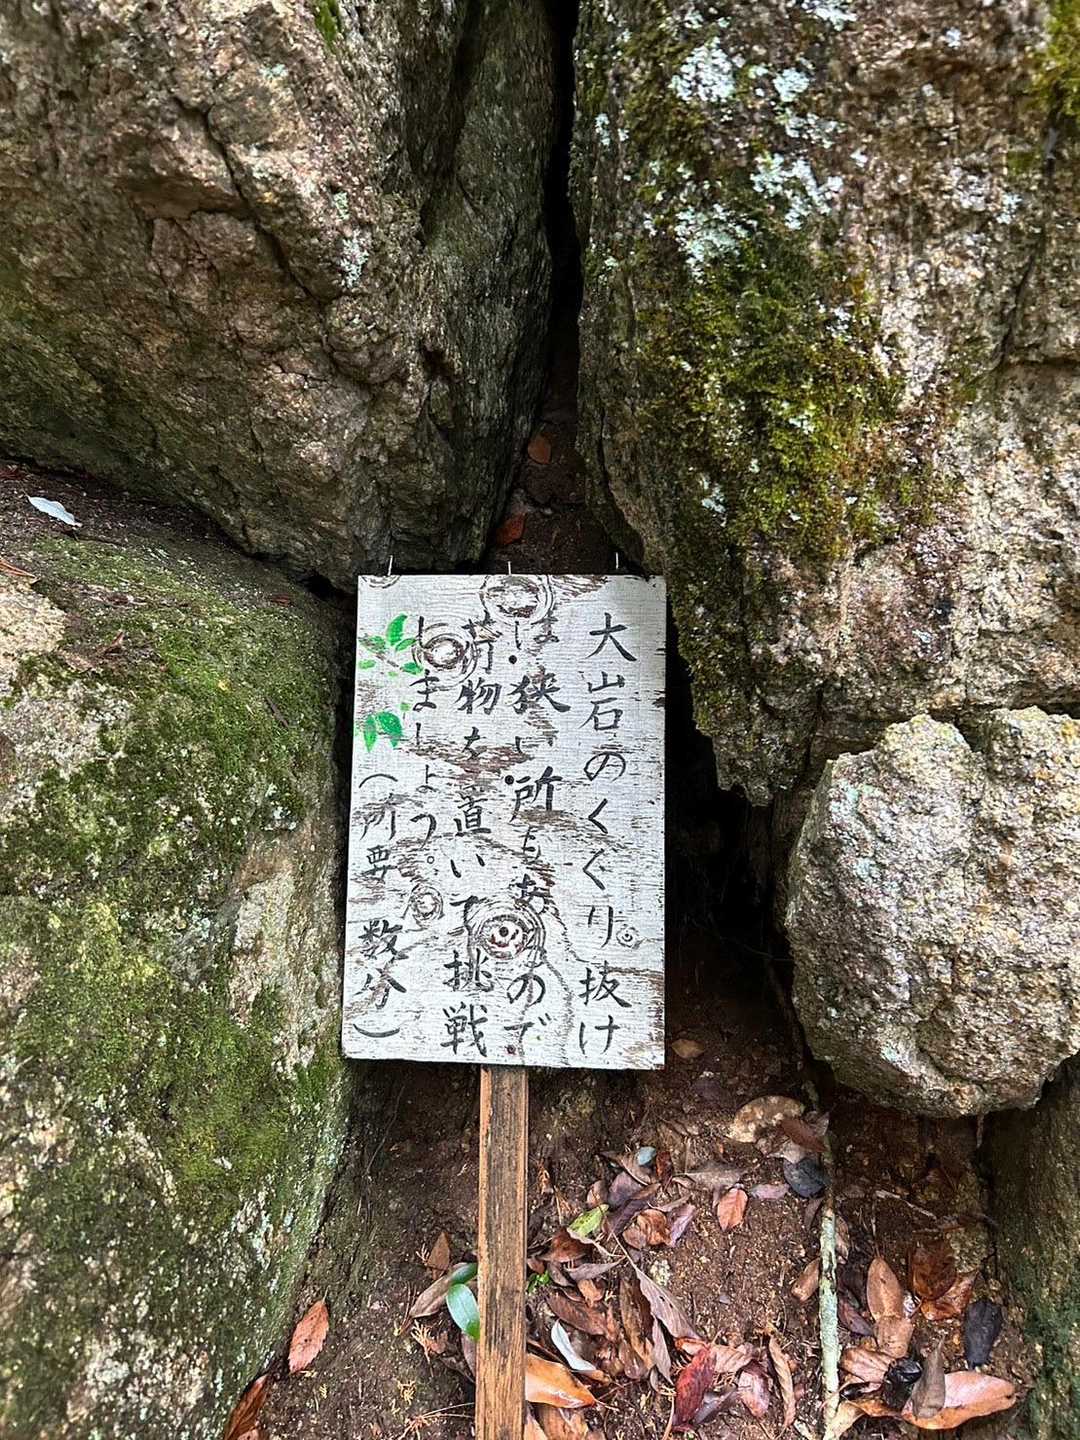 大岩のくぐり抜け
は狭い所もあるので
荷物を置いて挑戦
しましょう。
（所要 数分）